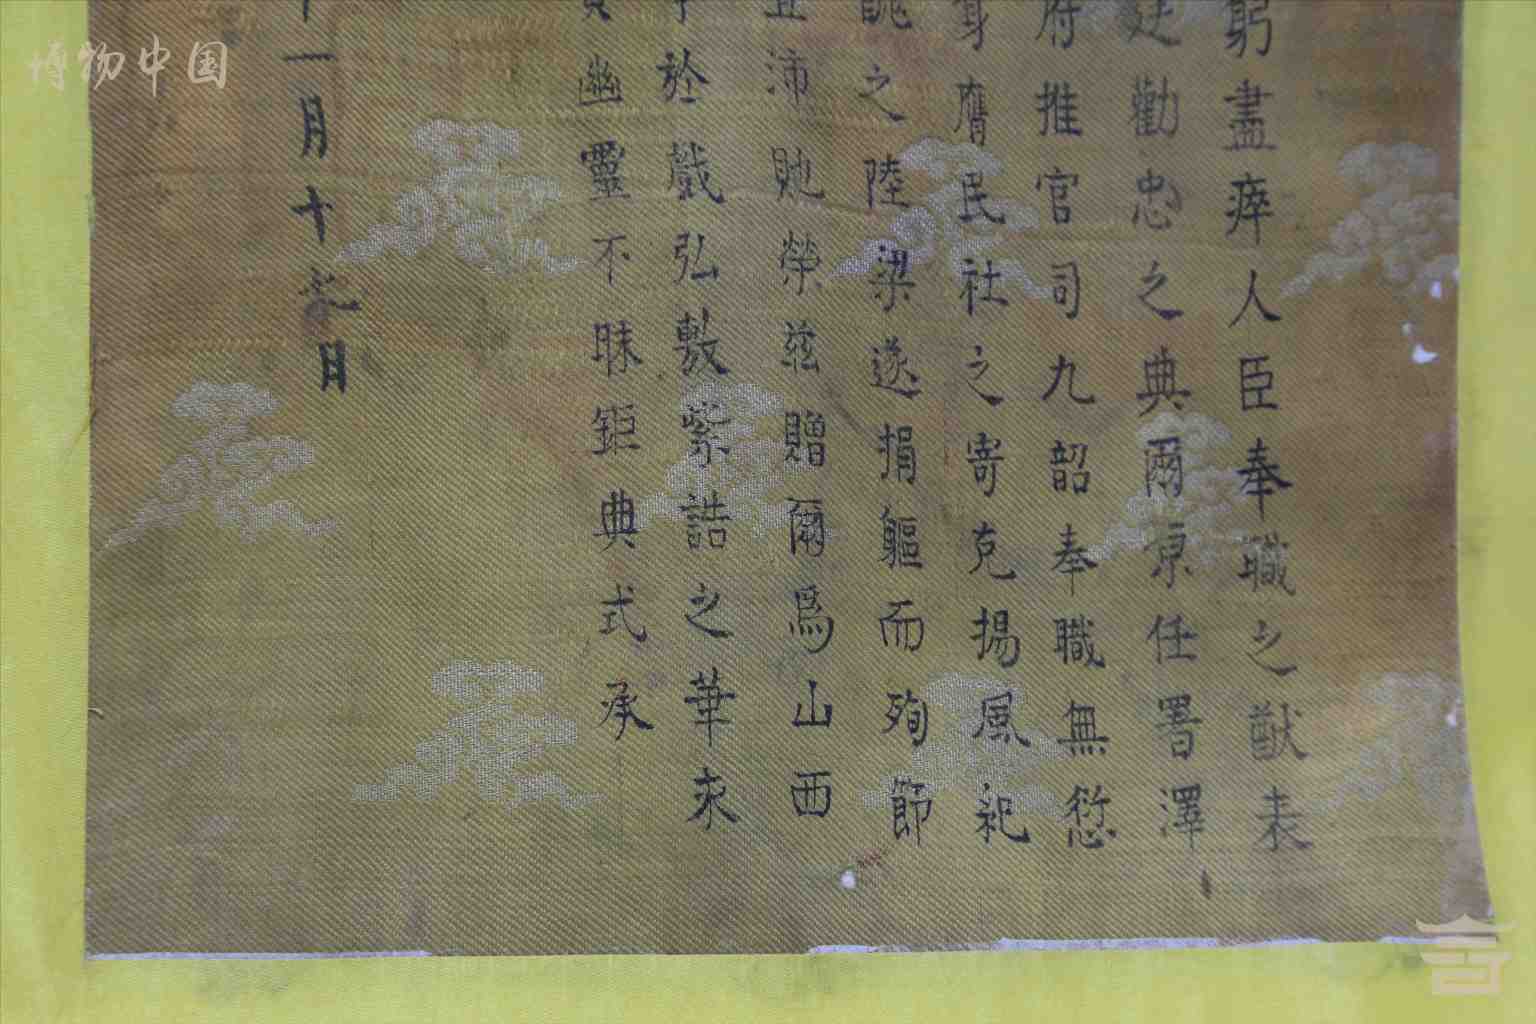 躬盡瘁人臣奉職之猷表
廷勸忠之典爾原任署澤
府推官司九韶奉職無愆
身膺民社之寄克揚風紀
之陸梁遂捐軀而殉節
宜沛貤榮茲贈爾為山西
於戲弘敷紫誥之華永
幽靈不昧鉅典式承
十一月十九日
博物中国